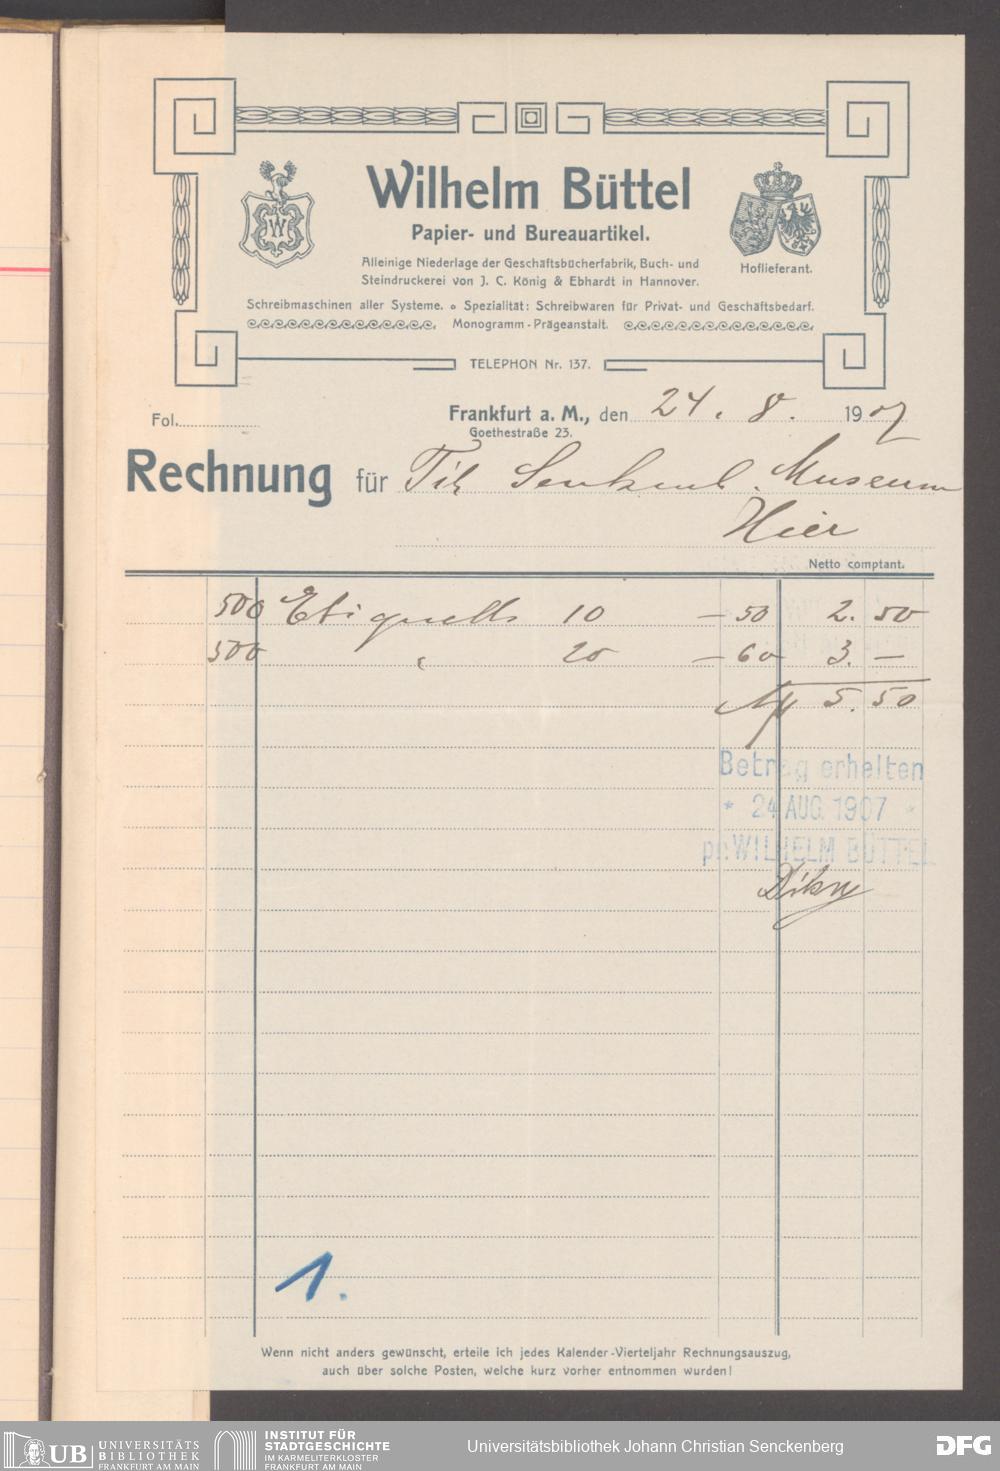 Wilhelm Büttel
Papier- und Bureauartikel.
Alleinige Niederlage der Geschäftsbücherfabrik, Buch- und
Steindruckerei von J. C. König & Ebhardt in Hannover.
Hoflieferant.
Schreibmaschinen aller Systeme. o Spezialität: Schreibwaren für Privat- und Geschäftsbedarf.
Monogramm-Prägeanstalt.
TELEPHON Nr. 137.
Fol. Frankfurt a. M., den 24. 8. 1907
Goethestraße 23.
Rechnung für Museum
Hier
Netto comptant.
500 10 – 50 2. 50
500 " 20 – 60 3. –
M 5. 50
Betrag erhalten
* 24 AUG. 1907 *
pr. WILHELM BÜTTEL
1.
Wenn nicht anders gewünscht, erteile ich jedes Kalender-Vierteljahr Rechnungsauszug,
auch über solche Posten, welche kurz vorher entnommen wurden!
UB UNIVERSITÄTS
BIBLIOTHEK
FRANKFURT AM MAIN
INSTITUT FÜR
STADTGESCHICHTE
IM KARMELITERKLOSTER
FRANKFURT AM MAIN
Universitätsbibliothek Johann Christian Senckenberg
DFG